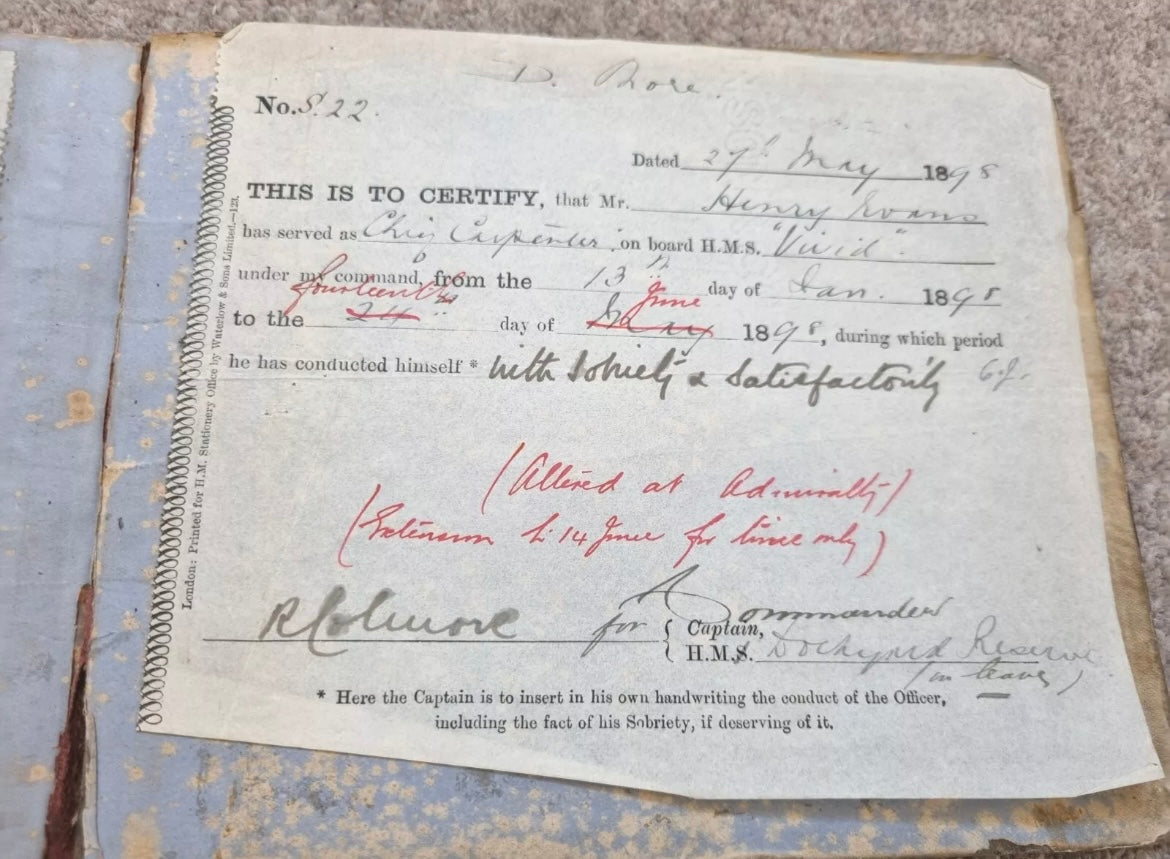 No. S. 22.
Dated 27th May 1898
THIS IS TO CERTIFY, that Mr. Henry Evans
has served as Chief Carpenter, on board H.M.S. "Vivid".
under my command, from the 13th day of Jan. 1898
fourteenth June
to the 24th day of May 1898, during which period
he has conducted himself * with Sobriety & Satisfactorily
(Altered at Admiralty)
(Extension to 14 June for time only)
for Commander
Captain,
H.M.S. Dockyard Reserve
(on leave)
* Here the Captain is to insert in his own handwriting the conduct of the Officer,
including the fact of his Sobriety, if deserving of it.
London: Printed for H.M. Stationery Office by Waterlow & Sons Limited.—123.